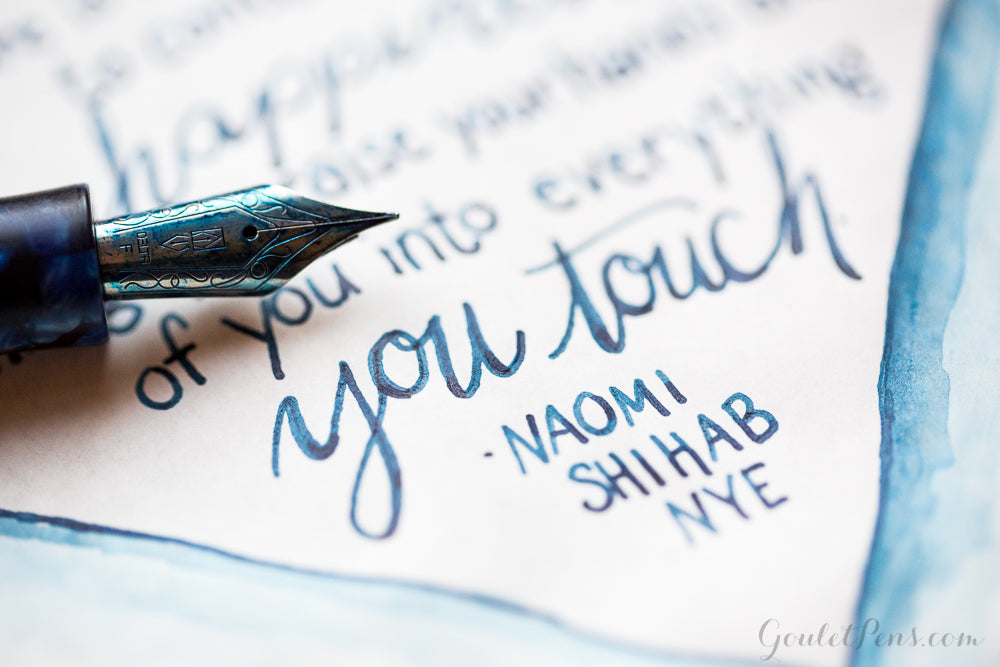 to
happin
raise your hands
of you into everything
you touch
- NAOMI
SHIHAB
NYE
DELTA
F
GouletPens.com